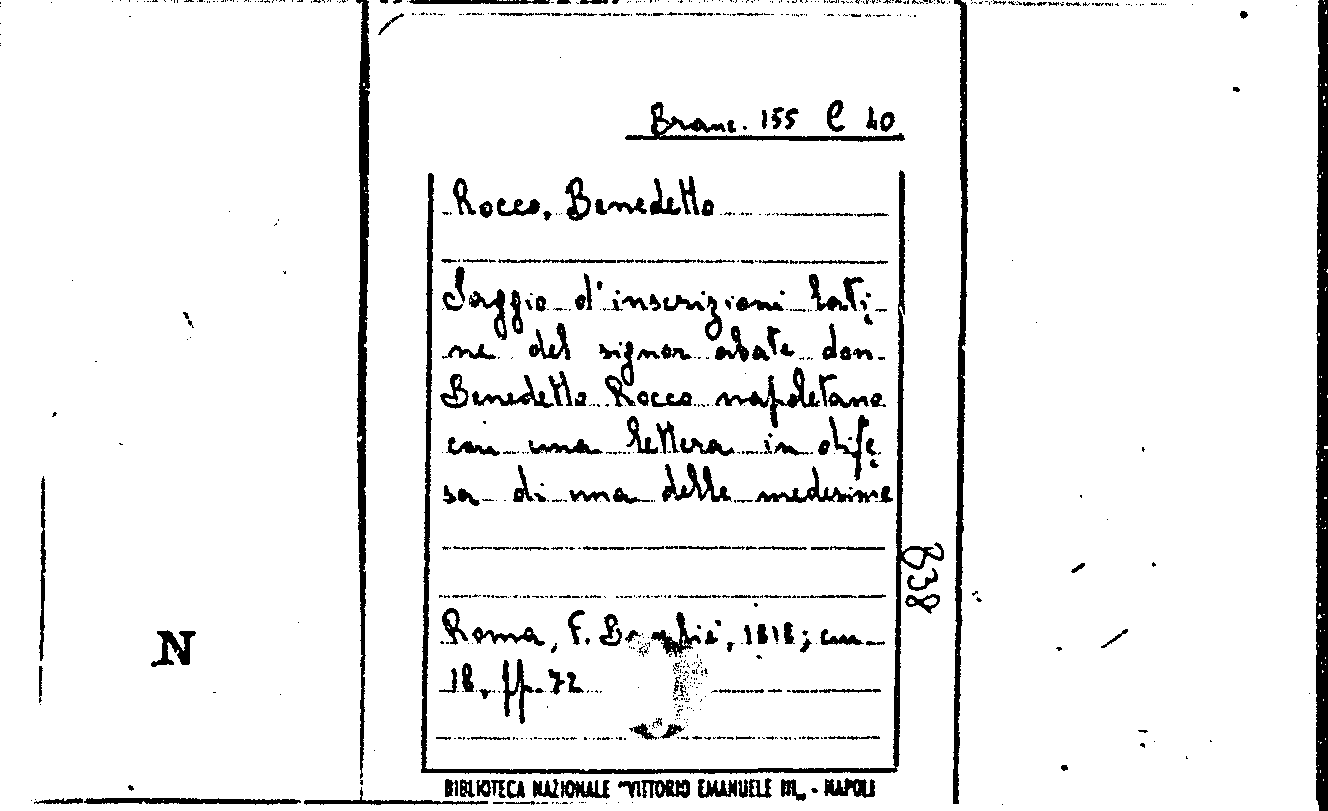 Branc. 155 C 40
Rocco, Benedetto
Saggio d'inscrizioni lati-
ne del signor abate don
Benedetto Rocco napoletano
con una lettera in dife-
sa di una delle medesime
838
Roma, F. 1818; cm
18, pp. 72
N
BIBLIOTECA NAZIONALE "VITTORIO EMANUELE III„ - NAPOLI